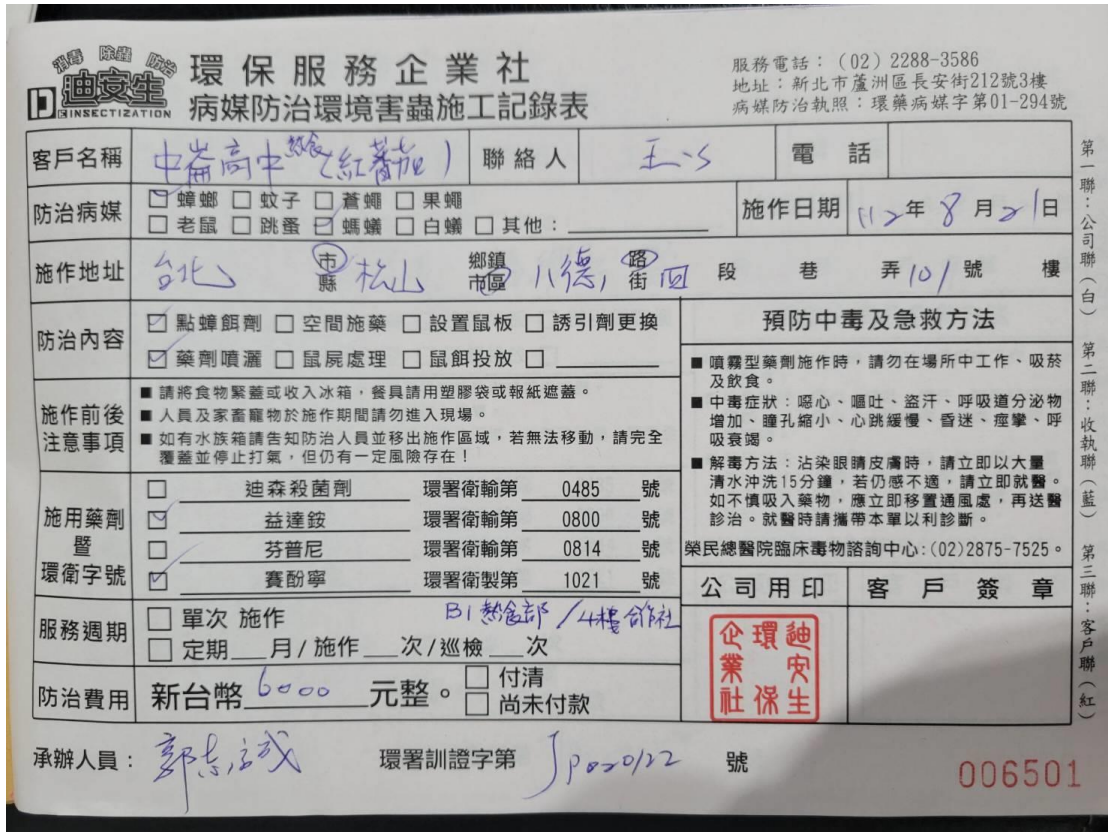 消毒 除蟲 防治
迪安生
INSECTIZATION
環保服務企業社
病媒防治環境害蟲施工記錄表
服務電話：(02) 2288-3586
地址：新北市蘆洲區長安街212號3樓
病媒防治執照：環藥病媒字第01-294號
客戶名稱 中崙高中熱食(紅蕃茄) 聯絡人 王 電話
防治病媒 ☑蟑螂 □蚊子 □蒼蠅 □果蠅
□老鼠 □跳蚤 ☑螞蟻 □白蟻 □其他：
施作日期 112年8月21日
施作地址 台北 市縣 松山 鄉鎮市區 八德 路街 四 段 巷 弄 101 號 樓
防治內容 ☑點蟑餌劑 □空間施藥 □設置鼠板 □誘引劑更換
☑藥劑噴灑 □鼠屍處理 □鼠餌投放 □
施作前後注意事項
■請將食物緊蓋或收入冰箱，餐具請用塑膠袋或報紙遮蓋。
■人員及家畜寵物於施作期間請勿進入現場。
■如有水族箱請告知防治人員並移出施作區域，若無法移動，請完全
覆蓋並停止打氣，但仍有一定風險存在！
施用藥劑暨環衛字號
□ 迪森殺菌劑 環署衛輸第 0485 號
☑ 益達銨 環署衛輸第 0800 號
□ 芬普尼 環署衛輸第 0814 號
☑ 賽酚寧 環署衛製第 1021 號
服務週期 □單次 施作 B1熱食部/4樓合作社
□定期 月/施作 次/巡檢 次
防治費用 新台幣 6000 元整。 □付清
□尚未付款
預防中毒及急救方法
■噴霧型藥劑施作時，請勿在場所中工作、吸菸
及飲食。
■中毒症狀：噁心、嘔吐、盜汗、呼吸道分泌物
增加、瞳孔縮小、心跳緩慢、昏迷、痙攣、呼
吸衰竭。
■解毒方法：沾染眼睛皮膚時，請立即以大量
清水沖洗15分鐘，若仍感不適，請立即就醫。
如不慎吸入藥物，應立即移置通風處，再送醫
診治。就醫時請攜帶本單以利診斷。
榮民總醫院臨床毒物諮詢中心:(02)2875-7525。
公司用印 客戶簽章
迪安生環保企業社
承辦人員：郭志誠 環署訓證字第 JP020122 號
006501
第一聯：公司聯（白） 第二聯：收執聯（藍） 第三聯：客戶聯（紅）